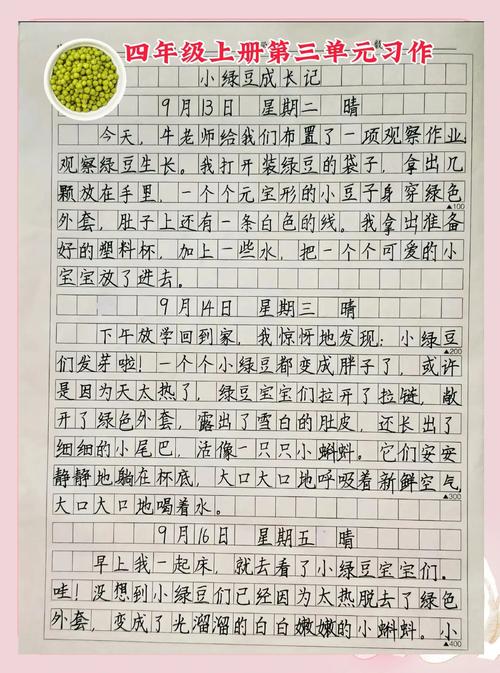 四年级上册第三单元习作
小绿豆成长记
9月13日 星期二 晴
今天,牛老师给我们布置了一项观察作业
观察绿豆生长。我打开装绿豆的袋子,拿出几
颗放在手里,一个个元宝形的小豆子身穿绿色
▲100
外套,肚子上还有一条白色的线。我拿出准备
好的塑料杯,加上一些水,把一个个可爱的小
宝宝放了进去。
9月14日 星期三 晴
下午放学回到家,我惊讶地发现:小绿豆
▲200
们发芽啦!一个个小绿豆都变成胖子了,或许
是因为天太热了,绿豆宝宝们拉开了拉链,敞
开了绿色外套,露出了雪白的肚皮,还长出了
细细的小尾巴,活像一只只小蝌蚪。它们安安
静静地躺在杯底,大口大口地呼吸着新鲜空气
▲300
大口大口地喝着水。
9月16日 星期五 晴
早上我一起床,就去看了小绿豆宝宝们。
哇!没想到小绿豆们已经因为太热脱去了绿色
外套,变成了光溜溜的白白嫩嫩的小蝌蚪。小
▲400